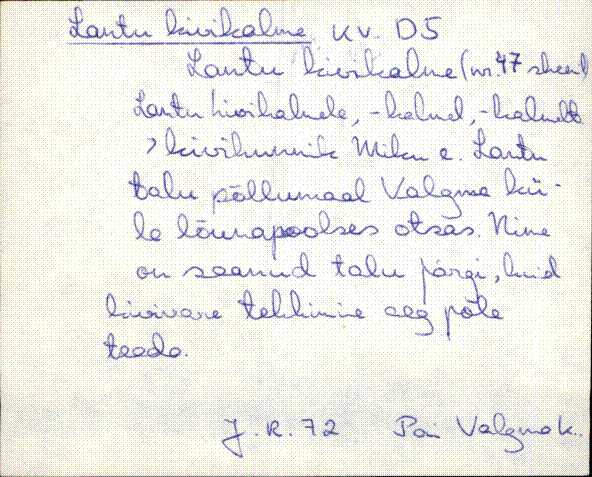 Lantu kivikalme KV. D5
Lantu kivikalme (nr. 47 skeemil)
Lantu kivikalmele, -kalmel, -kalmelt
> kivihunnik Miku e. Lantu
talu põllumaal Valgma kü-
la lõunapoolses otsas. Nime
on saanud talu järgi, kuid
kivivare tekkimise aeg pole
teada.
J. R. 72 Pai Valgma k.